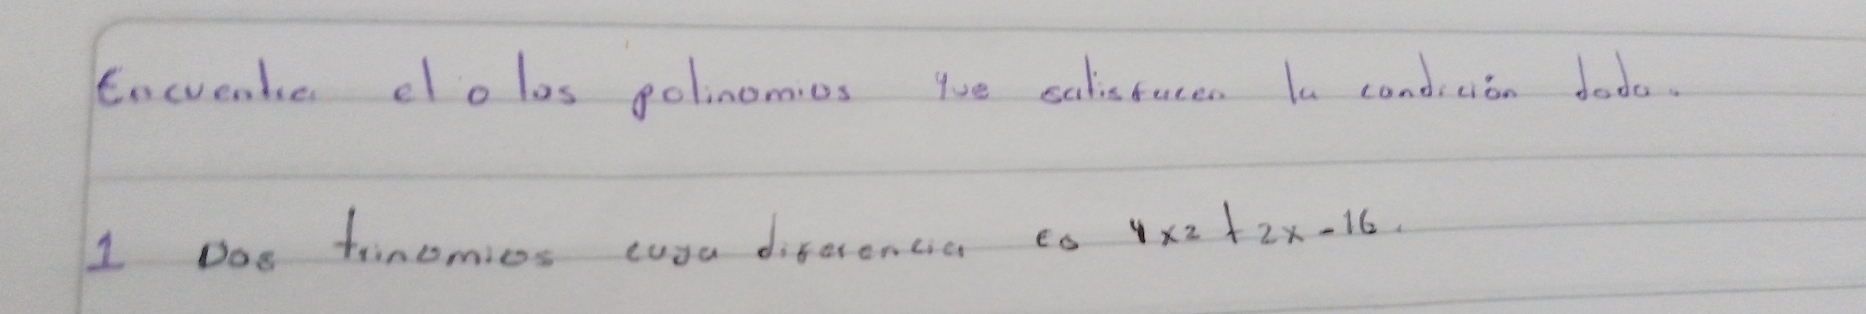 Encuentre el o los polinomios que satisfacen la condición dada.
1 Dos trinomios cuya diferencia es 4x2 + 2x - 16.